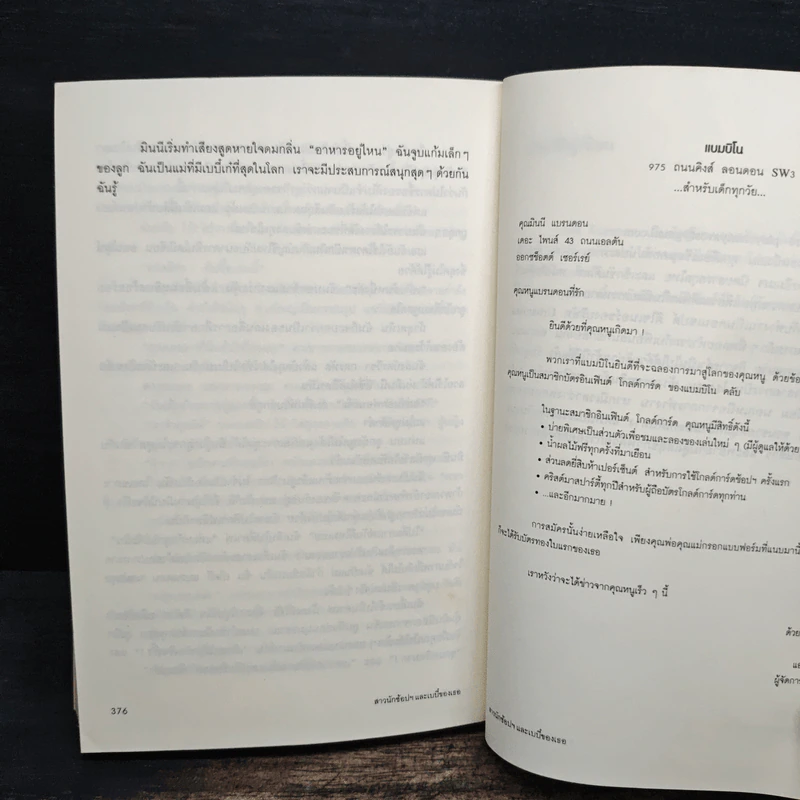 มินนีเริ่มทำเสียงสูดหายใจดมกลิ่น “อาหารอยู่ไหน” ฉันจูบแก้มเล็กๆ
ของลูก ฉันเป็นแม่ที่มีเบบี้เก๋ที่สุดในโลก เราจะมีประสบการณ์สนุกสุดๆ ด้วยกัน
ฉันรู้
376
สาวนักช้อปฯ และเบบี้ของเธอ
แบมบิโน
975 ถนนคิงส์ ลอนดอน SW3
...สำหรับเด็กทุกวัย...
คุณมินนี แบรนดอน
เดอะ ไพนส์ 43 ถนนเอลตัน
ออกซ์ช็อตต์ เซอร์เรย์
คุณหนูแบรนดอนที่รัก
ยินดีด้วยที่คุณหนูเกิดมา !
พวกเราที่แบมบิโนยินดีที่จะฉลองการมาสู่โลกของคุณหนู ด้วยข้อ
คุณหนูเป็นสมาชิกบัตรอินเฟ้นต์ โกลด์การ์ด ของแบมบิโน คลับ
ในฐานะสมาชิกอินเฟ้นต์ โกลด์การ์ด คุณหนูมีสิทธิ์ดังนี้
• บ่ายพิเศษเป็นส่วนตัวเพื่อชมและลองของเล่นใหม่ ๆ (มีผู้ดูแลให้ด้วย
• น้ำผลไม้ฟรีทุกครั้งที่มาเยือน
• ส่วนลดยี่สิบห้าเปอร์เซ็นต์ สำหรับการใช้โกลด์การ์ดช้อปฯ ครั้งแรก
• คริสต์มาสปาร์ตี้ทุกปีสำหรับผู้ถือบัตรโกลด์การ์ดทุกท่าน
• ...และอีกมากมาย !
การสมัครนั้นง่ายเหลือใจ เพียงคุณพ่อคุณแม่กรอกแบบฟอร์มที่แนบมานี้
ก็จะได้รับบัตรทองใบแรกของเธอ
เราหวังว่าจะได้ข่าวจากคุณหนูเร็ว ๆ นี้
ด้วย
ผู้จัดการ
สาวนักช้อปฯ และเบบี้ของเธอ